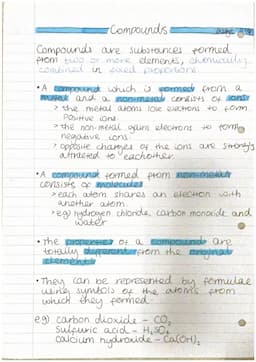 Compounds
Compounds are substances formed
from two or more elements, chemically
combined in fixed proportions
• A compound which is formed from a
metal and a non-metal consists of ions
> the metal atoms lose electrons to form
positive ions
> the non-metal gains electrons to form
negative ions
> opposite charges of the ions are strongly
attracted to eachother
• A compound formed from non-metals
consists of molecules
> each atom shares an electron with
another atom
> eg) hydrogen chloride, carbon monoxide and
water
• The properties of a compound are
totally different from the original
elements
• They can be represented by formulae
using symbols of the atoms from
which they formed
eg) carbon dioxide - CO₂
sulfuric acid - H₂SO₄
calcium hydroxide - Ca(OH)₂